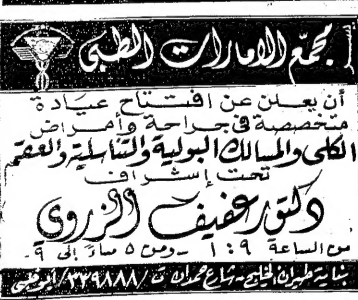 يسر
مجمع الامارات الطبي
أن يعلن عن افتتاح عيادة
متخصصة في جراحة وأمراض
الكلى والمسالك البولية والتناسلية والعقم
تحت إشراف
دكتور عفيف الزروي
من الساعة ٩ : ١ - ومن ٥ مساءً إلى ٩
بناية طيران الخليج - شارع حمدان ت / ٣٣٩٨٨٨ / ابوظبي